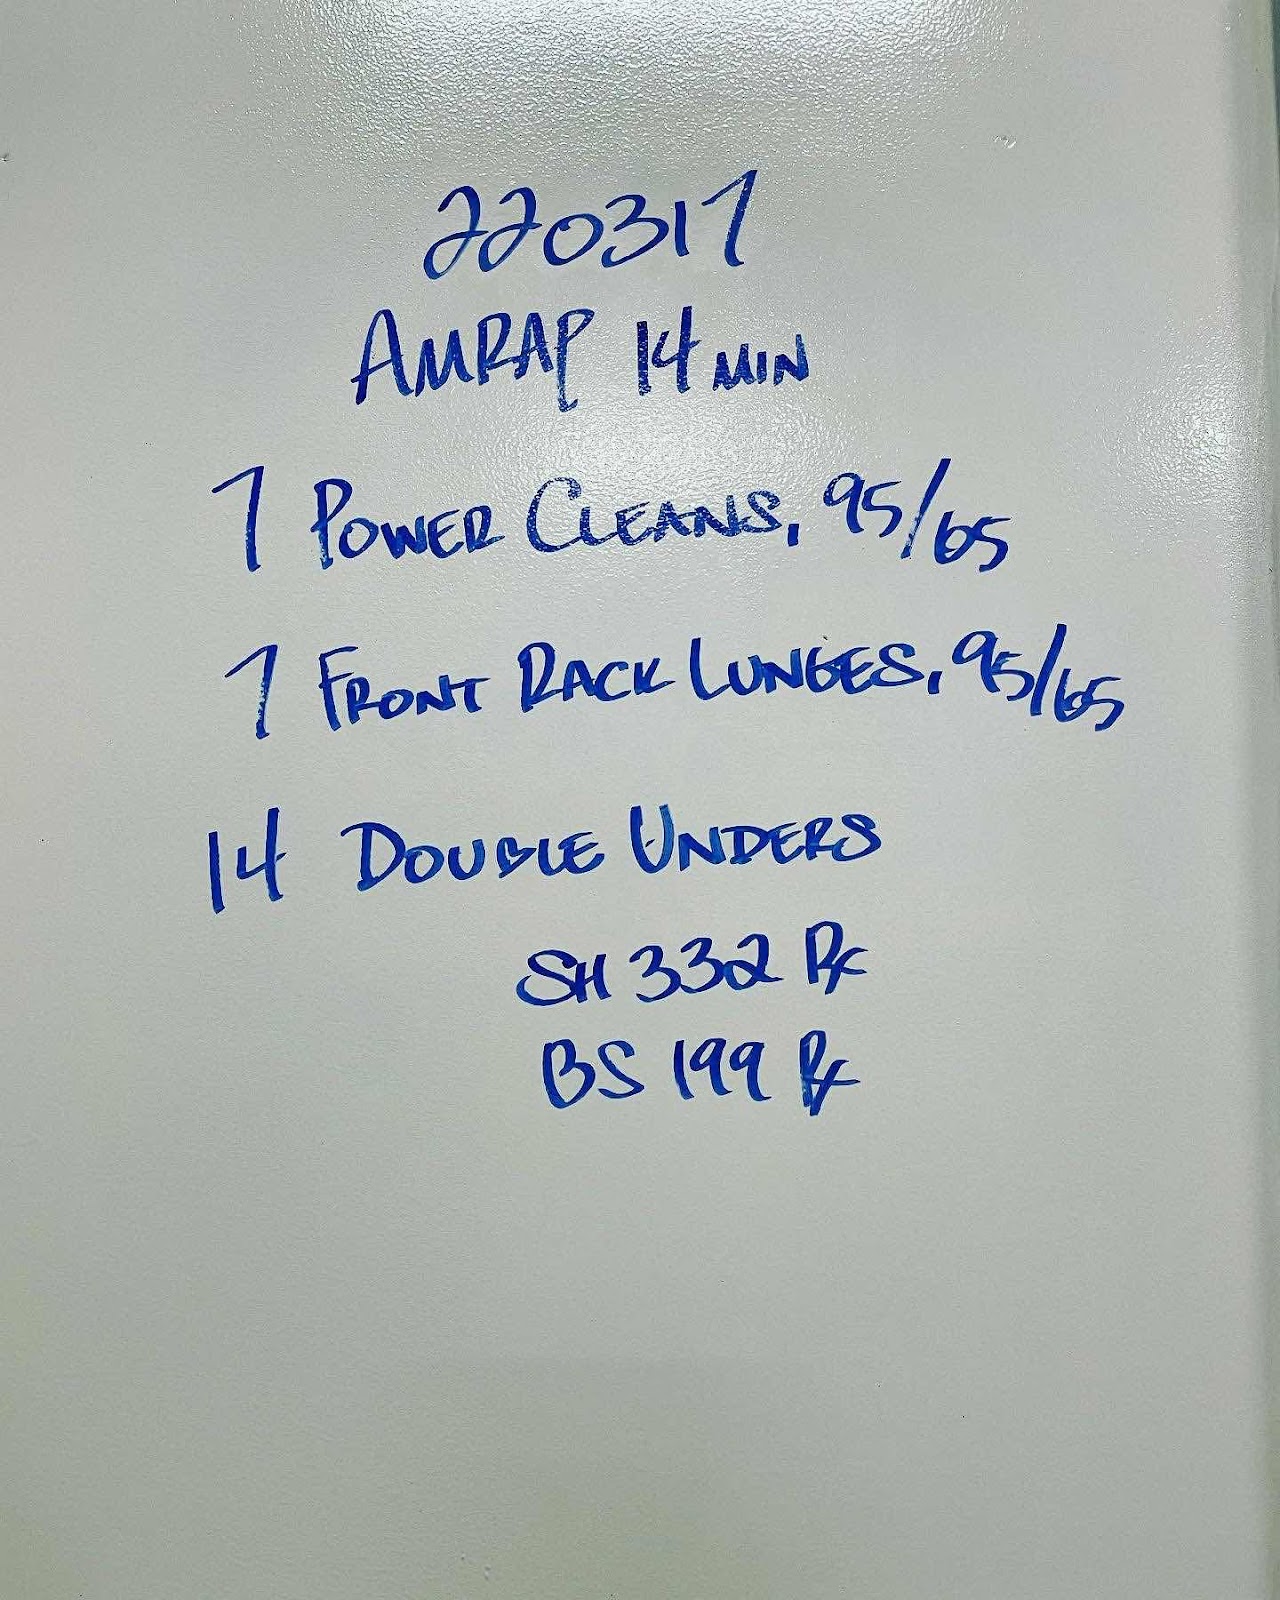 220317
AMRAP 14 MIN
7 POWER CLEANS, 95/65
7 FRONT RACK LUNGES, 95/65
14 DOUBLE UNDERS
SH 332 Rx
BS 199 Rx